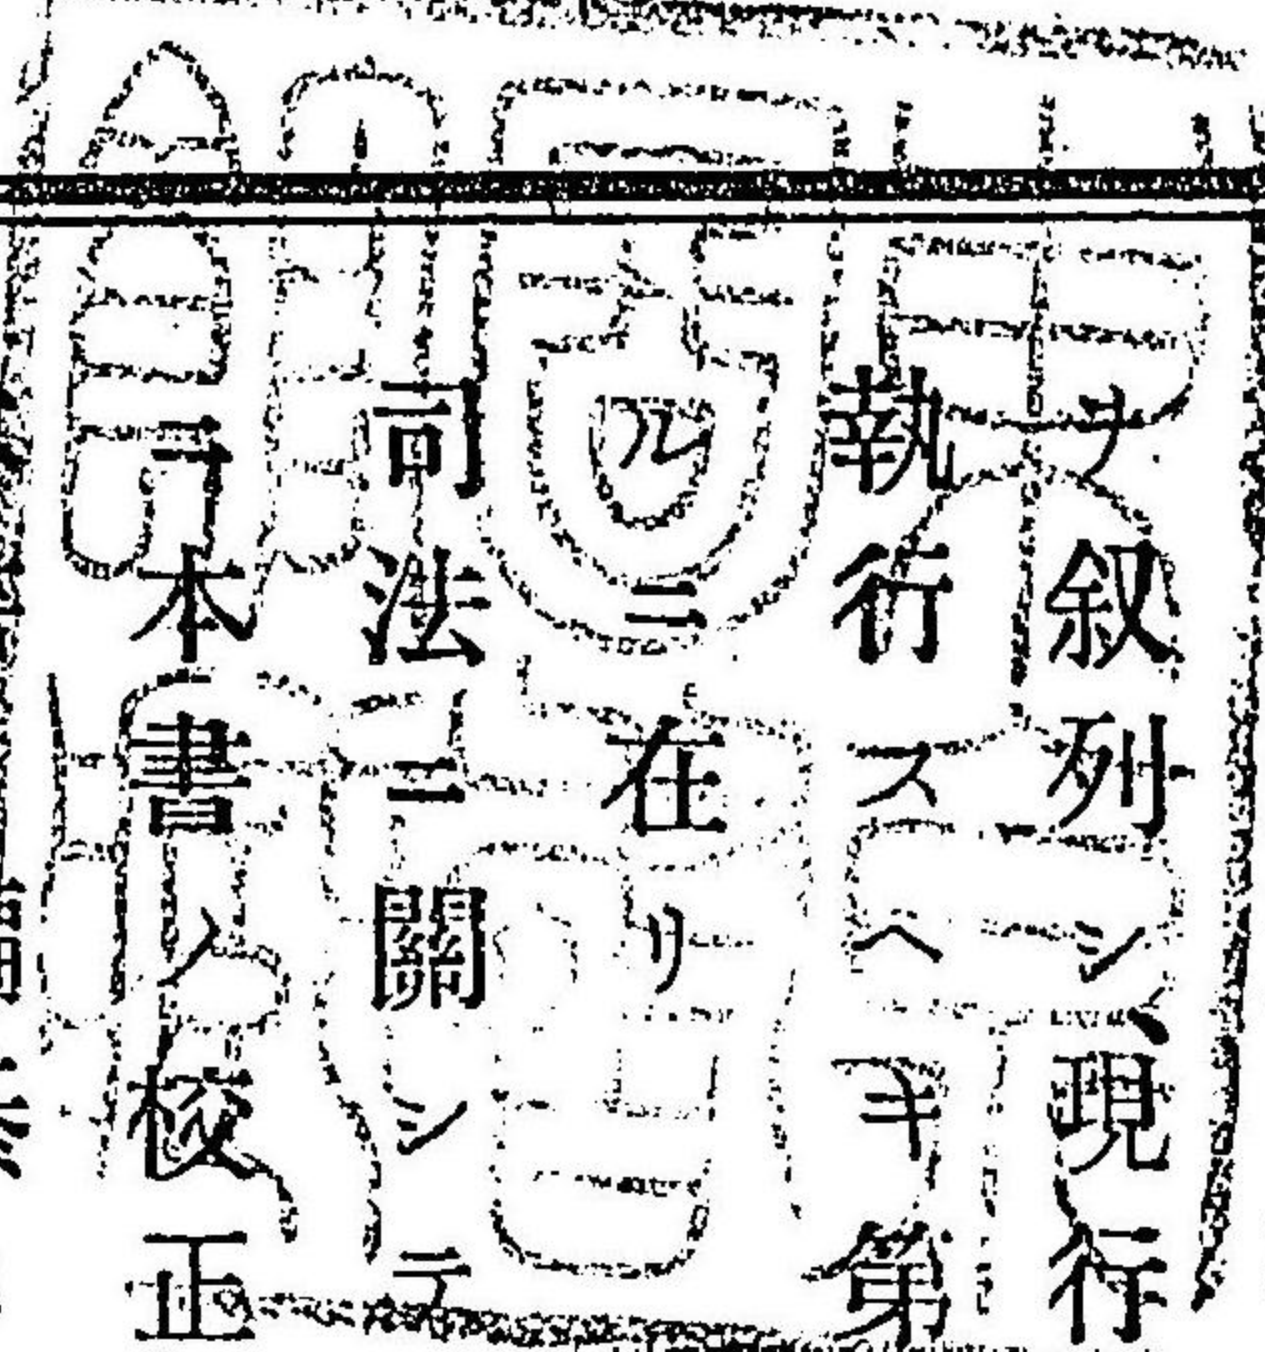 ヲ叙列シ、現行
執行スヘキ第
ルニ在リ
司法ニ關シテ
ヿ本書ノ校正